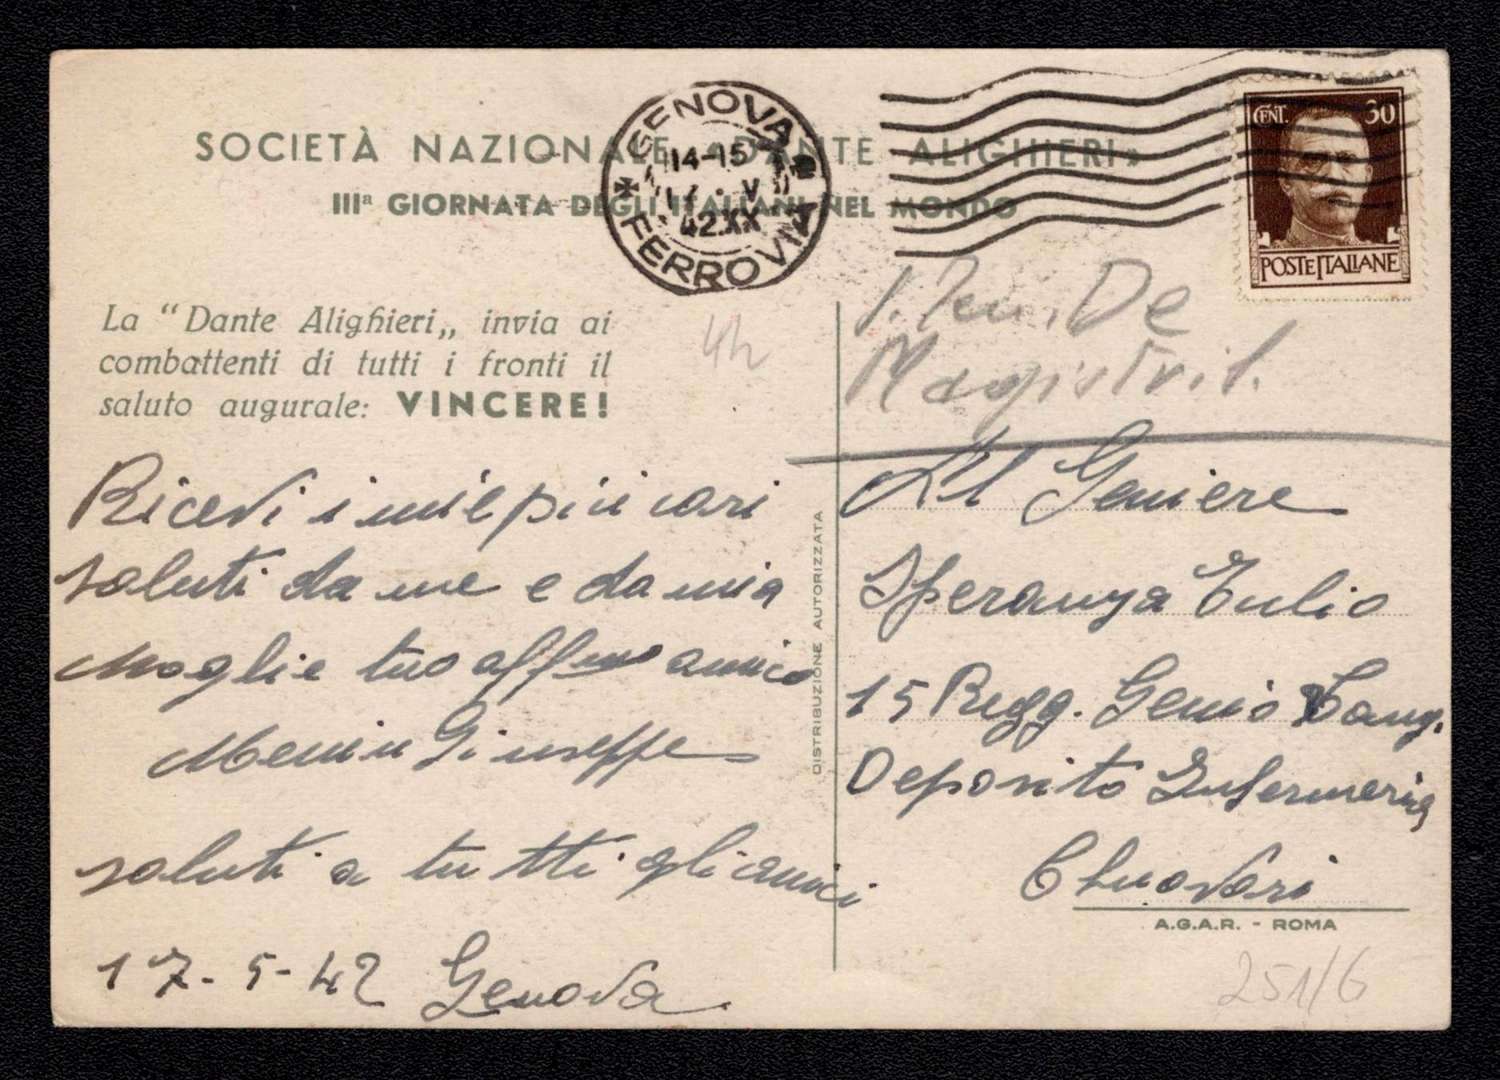 SOCIETÀ NAZIONALE «DANTE ALIGHIERI»
IIIª GIORNATA DEGLI ITALIANI NEL MONDO
GENOVA
14-15
17 · V
42.XX
FERROVIA
CENT. 30
POSTE ITALIANE
La "Dante Alighieri„ invia ai
combattenti di tutti i fronti il
saluto augurale: VINCERE!
Ricevi i miei più cari
saluti da me e da mia
Moglie tuo affmo amico
Menin Giuseppe
saluti a tutti gli amici
17-5-42 Genova
DISTRIBUZIONE AUTORIZZATA
De
Magistris.
Al Geniere
Speranza Tulio
15 Regg. Genio
Deposito Infermeria
Chiavari
A.G.A.R. - ROMA
251/6